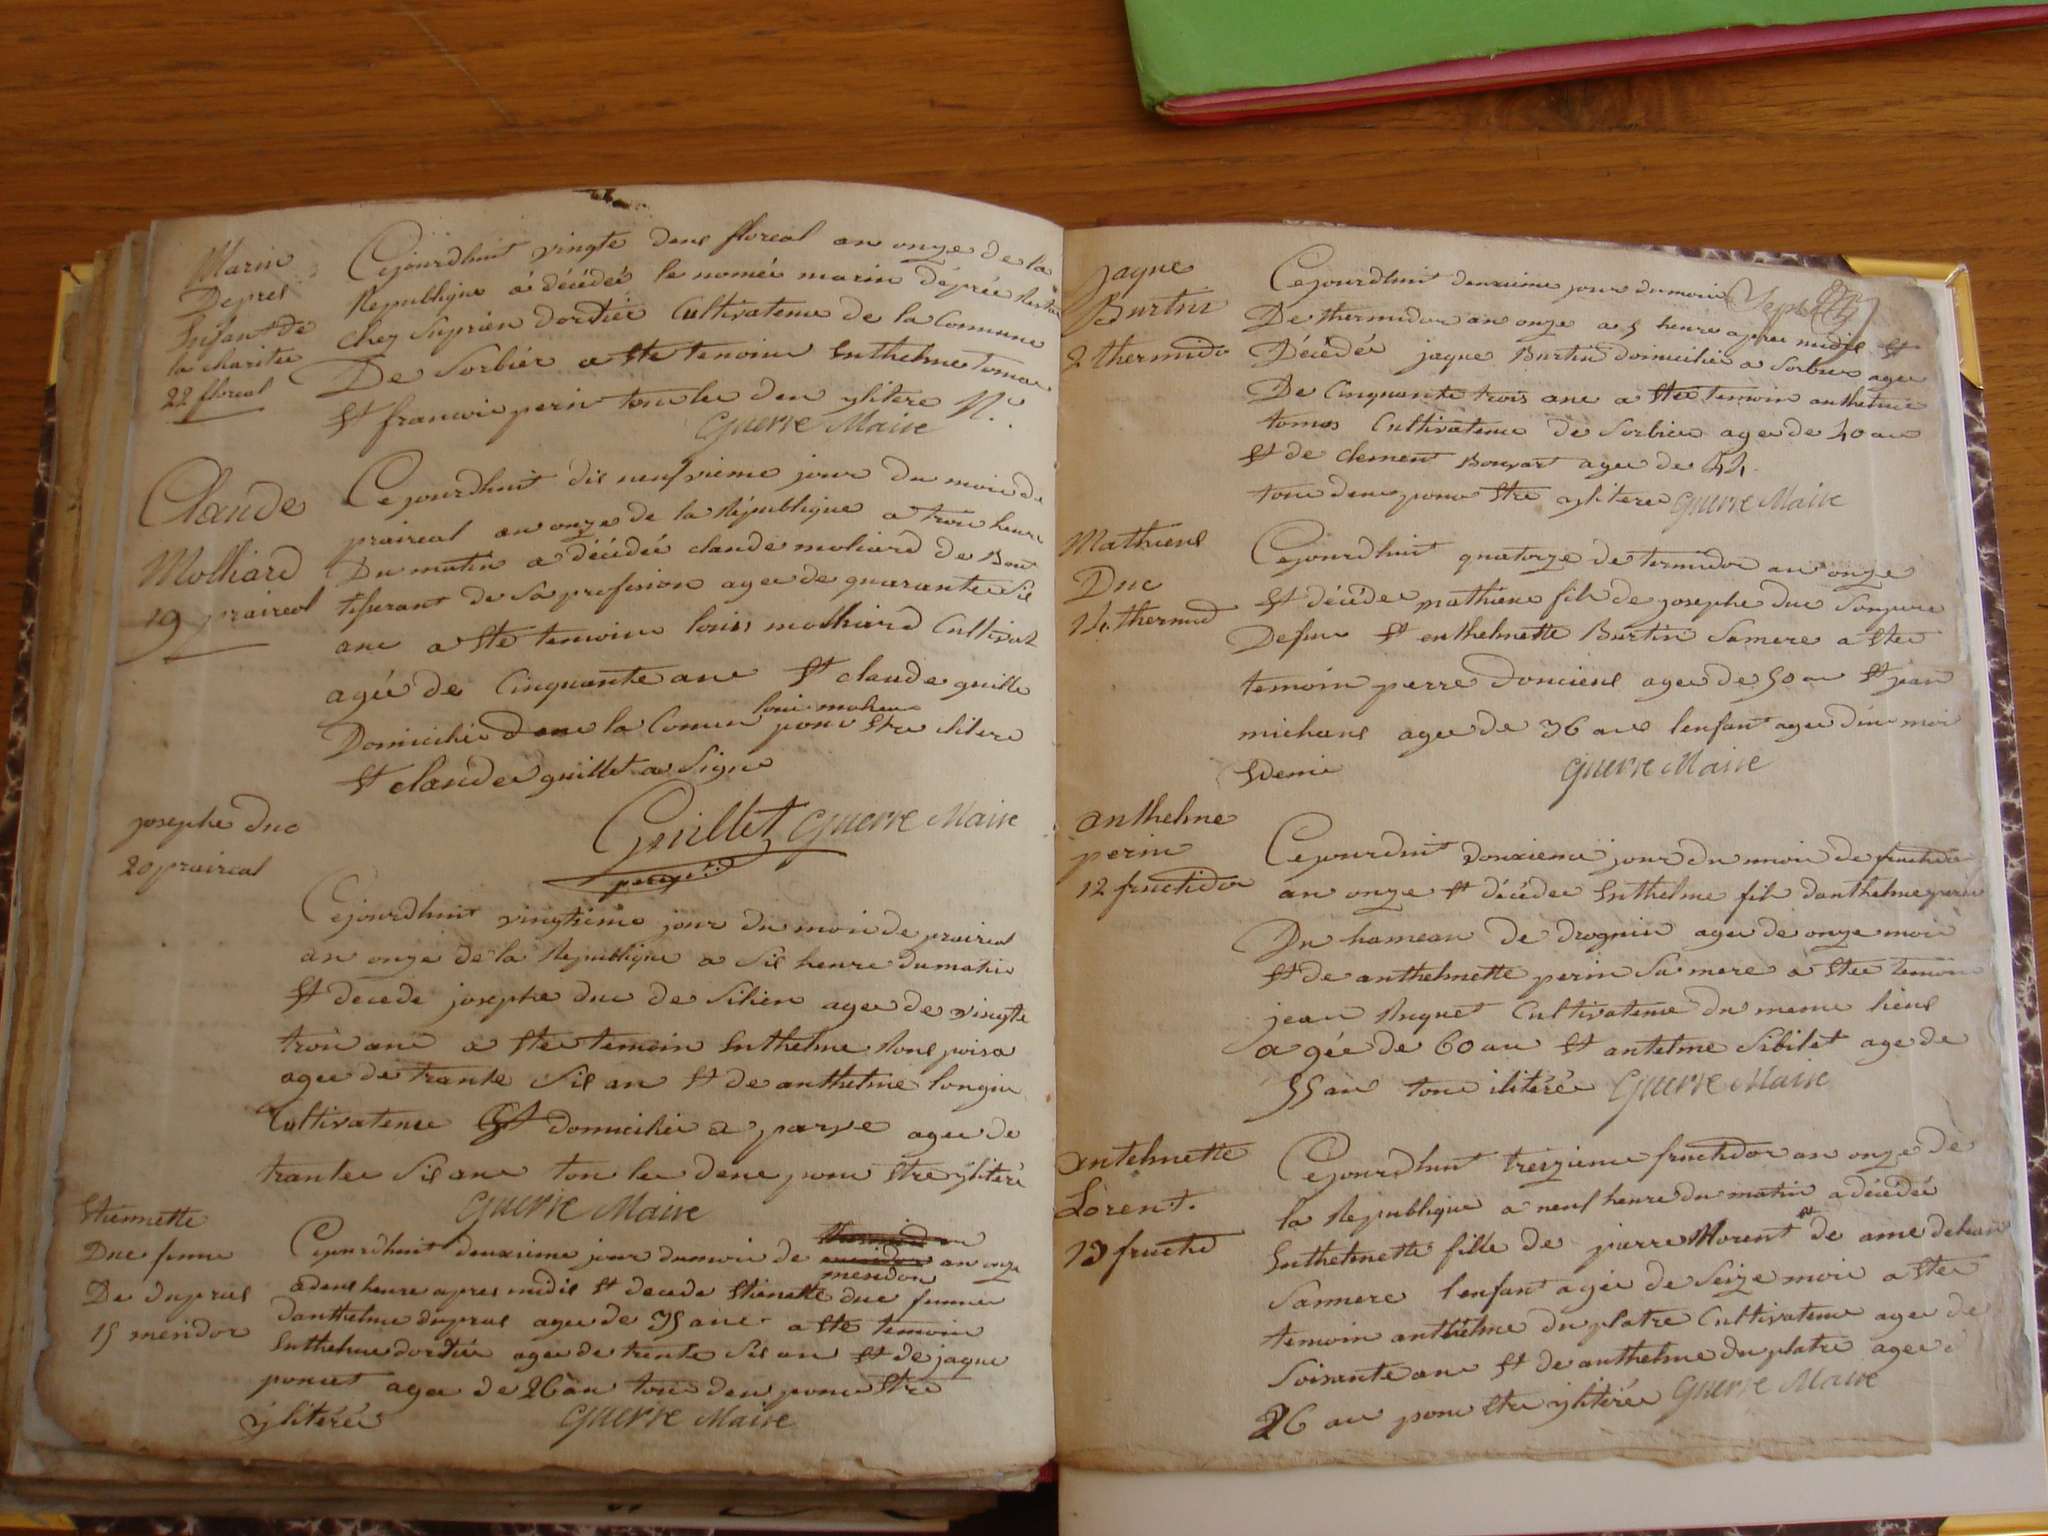 Marin
Depres
Enfant de
la charitee
22 floreal
Cejourdhuit vingte deus floreal an onze de la
Republique a décédée le nomée marin déprée
chez Suprien dordier Cultivateur de la Comune
De Sorbiér a Ete temoine Enthelme tomas
Et francoi perin tou les deu ylitere
Guerre Maire
Claude
Molliard
19 praireal
Cejourdhuit dis neufvieme jour du moi de
praireal an onze de la République a troi heure
Du matin a décédée claude moliard de
tisserant de Sa profesion agee de quarante Sis
anc a Ete temoine louis molliard Cultivat
agée de Cinquante anc Et claude guille
Domicilie danc la Comun pour Etre ilitere
Et claude guillet a Signe
Guillet Guerre Maire
josephe duc
20 praireal
Cejourdhuit vingtieme jour du moi de praireal
an onze de la Republique a Sis heure du matin
Et decede josephe duc de Silien agee de vingte
troi anc a Ete temoin Enthelme
agee de trante Sis an Et de anthelme longin
Cultivateur Et domicilie a parve agee de
trantee Sis anc tou les deuc pour Etre ylitere
Guerre Maire
Etiennette
Duc femme
De dupras
15 meridor
Cejourdhuit deuxsieme jour du moi de an onze
meridor
a deus heure apres midis Et decede Etienette duc femme
danthelme dupras agee de 35 anc a Ete temoin
Enthelme dordier agee de trente Sis an Et de jaque
poncet agee de 26 an tou deu pour Etre
ylitérée
Guerre Maire
Jaque
Burtin
2 thermido
Cejourdhuit deuxieme jour du moi
De thermidor an onze a 5 heure apree midis Et
Décédée jaque Burtin domicilier a Sorbier agee
De Cinquante trois anc a Etee temoin anthelme
tomas Cultivateur de Sorbier agee de 40 an
Et de clement Bouvart agee de 44
tou deu pour Etre ylitere Guerre Maire
Mathieus
Duc
14 thermid
Cejourdhuit quatorze de termidor an onze
Et décédee mathieu fils de josephe duc Sonpere
Defun Et enthelmette Burtin Samere a Etee
temoin perre doncieus agee de 50 an Et jean
michaus agee de 36 anc lenfant agee dun moi
Edemi
Guerre Maire
anthelme
perin
12 fructidor
Cejourduit douxieme jour du moi de fructidor
an onze Et décédee Enthelme fils danthelme perin
Du hameau de drognin agee de onze moi
Et de anthelmette perin Sa mere a Etee temoin
jean Cultivateur du meme lieus
agée de 60 an Et antelme Sibilet age de
55 an tou ilitérée Guerre Maire
antelmette
Lorent.
13 fructid
Cejourdhuit treizieme fructidor an onze de
la Republique a neuf heure du matin a décédée
Enthelmette fille de pierre lorent Et de
Sanmere lenfant agée de Seize moi a Etee
temoin anthelme duplatre Cultivateur agee de
Soisante anc Et de anthelme duplatre agee
26 an pour Etre ylitérée Guerre Maire